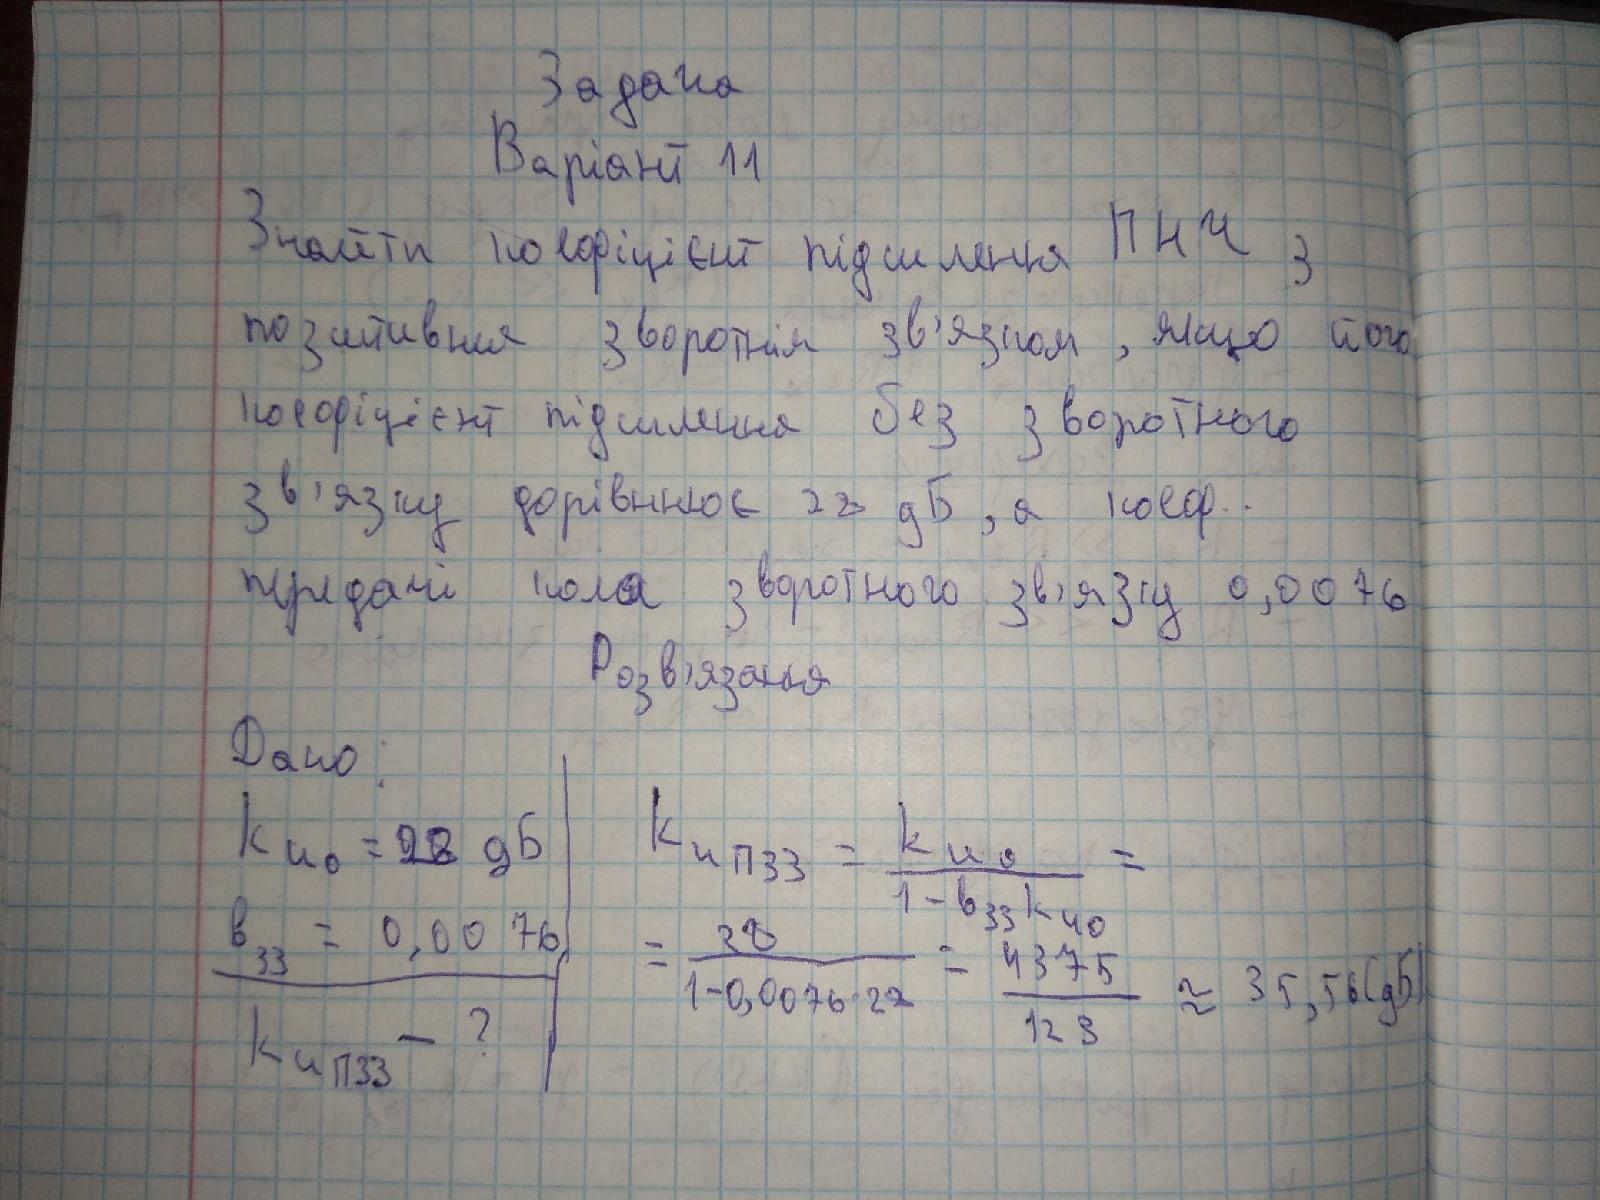 Задача
Варіант 11
Знайти коефіцієнт підсилення ПНЧ з
позитивним зворотнім зв'язком, якщо його
коефіцієнт підсилення без зворотного
зв'язку дорівнює 28 дБ, а коеф.
передачі кола зворотного зв'язку 0,0076
Розв'язання
Дано:
Kио = 28 дБ
в33 = 0,0076
KиПЗЗ - ?
KиПЗЗ = Kио / 1-в33Kио =
= 28 / 1-0,0076·28 = 4375 / 123 ≈ 35,56(дБ)